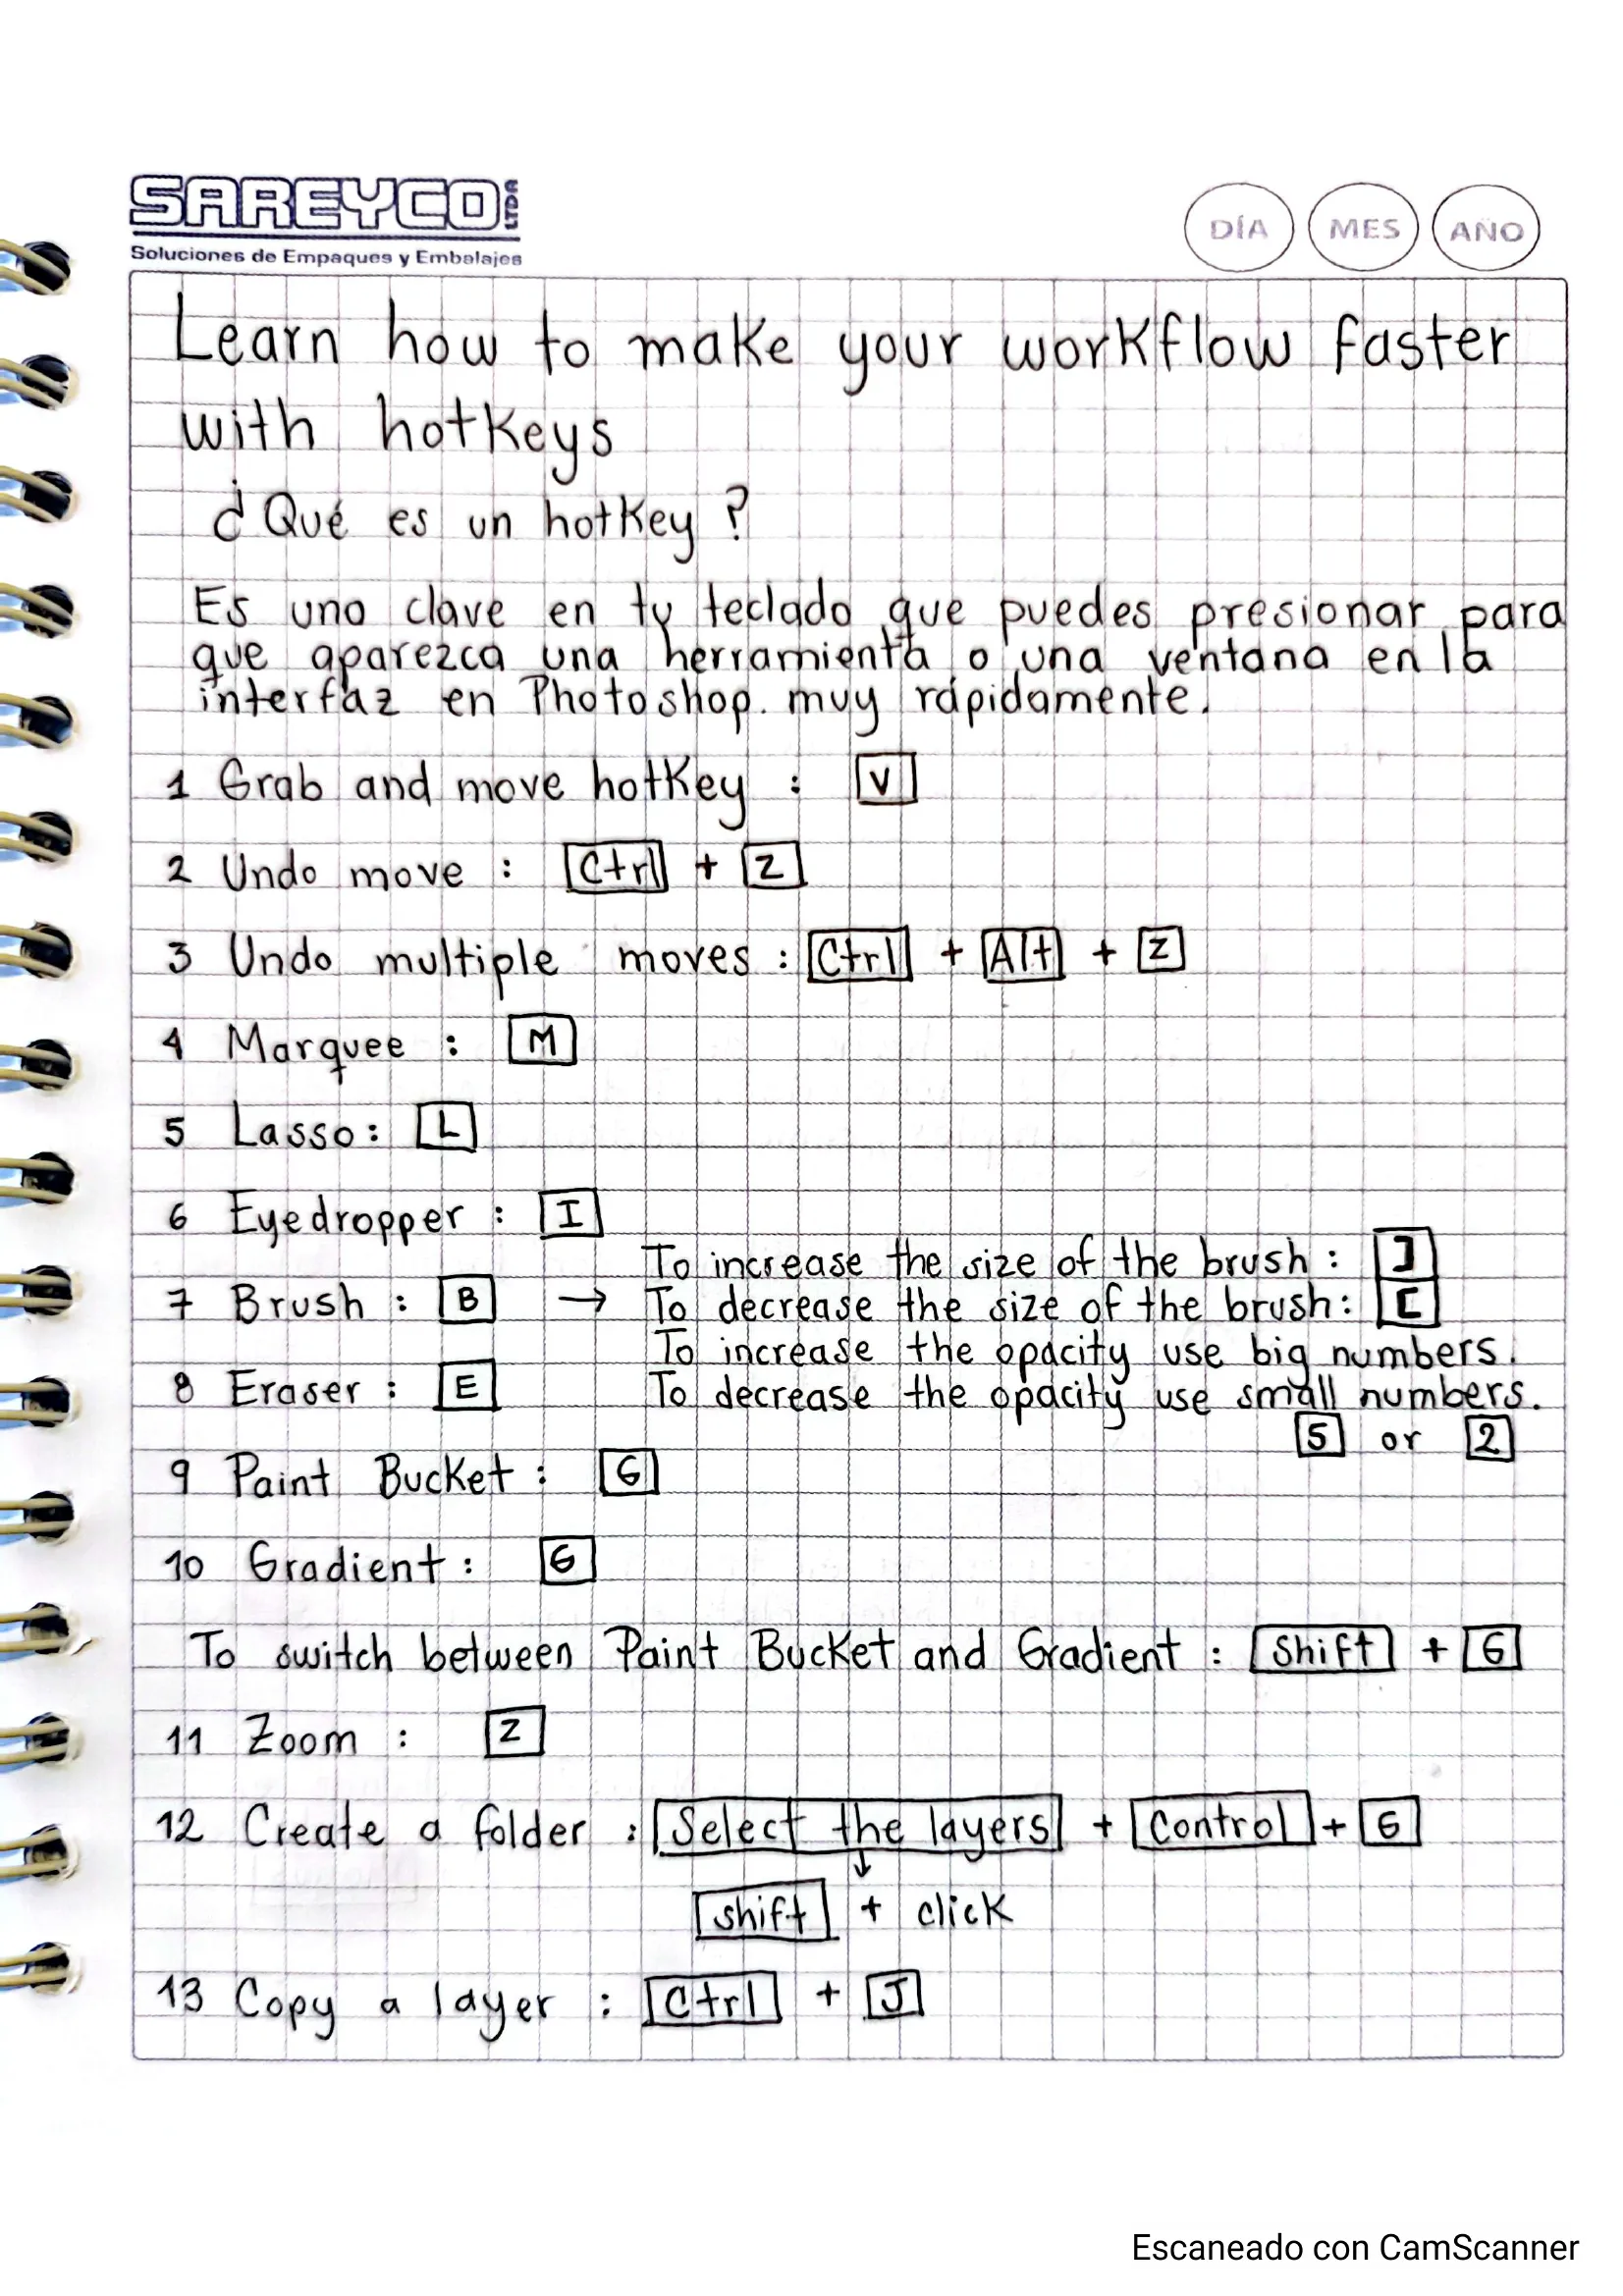 SAREYCO LTDA
Soluciones de Empaques y Embalajes
DÍA MES AÑO
Learn how to make your workflow faster
with hotkeys
¿Qué es un hotkey?
Es una clave en tu teclado que puedes presionar para
que aparezca una herramienta o una ventana en la
interfaz en Photoshop. muy rápidamente.
1 Grab and move hotkey : V
2 Undo move : Ctrl + Z
3 Undo multiple moves : Ctrl + Alt + Z
4 Marquee : M
5 Lasso : L
6 Eyedropper : I
To increase the size of the brush : ]
7 Brush : B → To decrease the size of the brush : [
To increase the opacity use big numbers.
8 Eraser : E To decrease the opacity use small numbers.
5 or 2
9 Paint Bucket : G
10 Gradient : G
To switch between Paint Bucket and Gradient : Shift + G
11 Zoom : Z
12 Create a folder : Select the layers + Control + G
↓
shift + click
13 Copy a layer : Ctrl + J
Escaneado con CamScanner